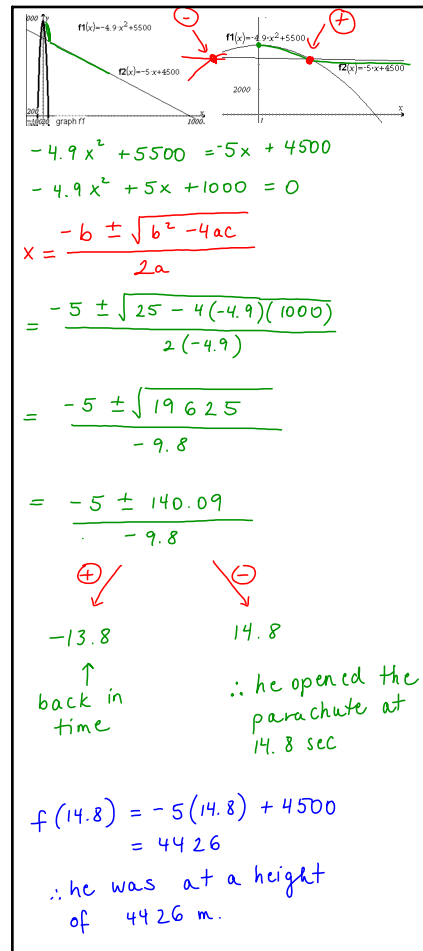 f1(x)=-4.9·x²+5500
f2(x)=-5·x+4500
200
graph f1
1000.
x
⊖
⊕
f1(x)=-4.9·x²+5500
f2(x)=-5·x+4500
2000
1
x
-4.9x² + 5500 = -5x + 4500
-4.9x² + 5x + 1000 = 0
x = (-b ± √(b² - 4ac)) / 2a
= (-5 ± √(25 - 4(-4.9)(1000))) / 2(-4.9)
= (-5 ± √19625) / -9.8
= (-5 ± 140.09) / -9.8
⊕ ⊖
-13.8 14.8
↑
back in
time
∴ he opened the
parachute at
14.8 sec
f(14.8) = -5(14.8) + 4500
= 4426
∴ he was at a height
of 4426 m.